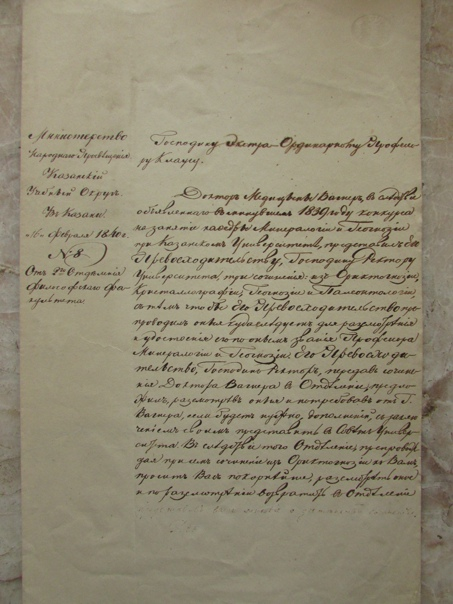 Министерство
Народнаго Просвѣщенія
Казанскій
Учебный Округъ
Въ Казани
Февраля 1840 г.
№ 8
Отъ 2го Отдѣленія
Философскаго Фа-
культета.
Господину Экстра-Ординарному Професс-
ру Клаусу.
Докторъ Медицины Вагнеръ, въ слѣдствіе
объявленнаго въ минувшемъ 1839 году конкурса
на занятіе каѳедры Минералогіи и Геогнозіи
при Казанскомъ Университетѣ, представилъ Его
Превосходительству, Господину Ректору
Университета, три сочиненія: изъ Ориктогнозіи,
Кристаллографіи, Геогнозіи и Палеонтологіи
съ тѣмъ чтобы Его Превосходительство пре-
проводилъ оныя куда слѣдуетъ для разсмотрѣнія
и удостоенія его по онымъ званія Профессора
Минералогіи и Геогнозіи. Его Превосходи-
тельство, Господинъ Ректоръ, передавъ сочине-
нія Доктора Вагнера въ Отдѣленіе, предло-
жилъ, разсмотрѣвъ оныя и потребовавъ отъ Г.
Вагнера, если будетъ нужно, дополненій, съ заклю-
ченіемъ своимъ представить въ Совѣтъ Универ-
ситета. Въ слѣдствіе того Отдѣленіе, препровож-
дая при семъ сочиненіе изъ Ориктогнозіи къ Вамъ,
проситъ Васъ покорнѣйше, разсмотрѣть оное
и по разсмотрѣніи возвратить въ Отдѣленіе